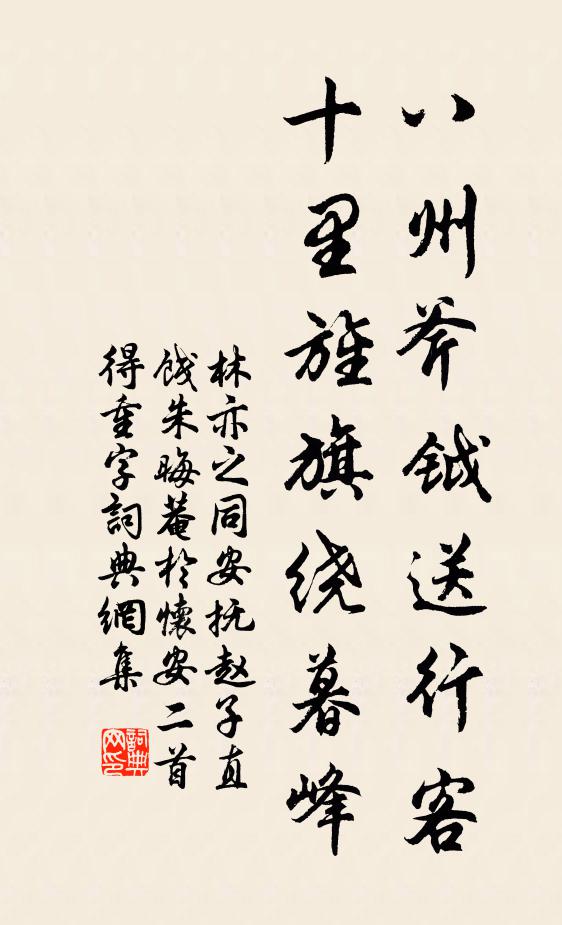 八州斧钺送行客
十里旌旗绕暮峰
林亦之同安抚赵子直
饯朱晦菴於懷安二首
得重字詞典網集
詞典
网印